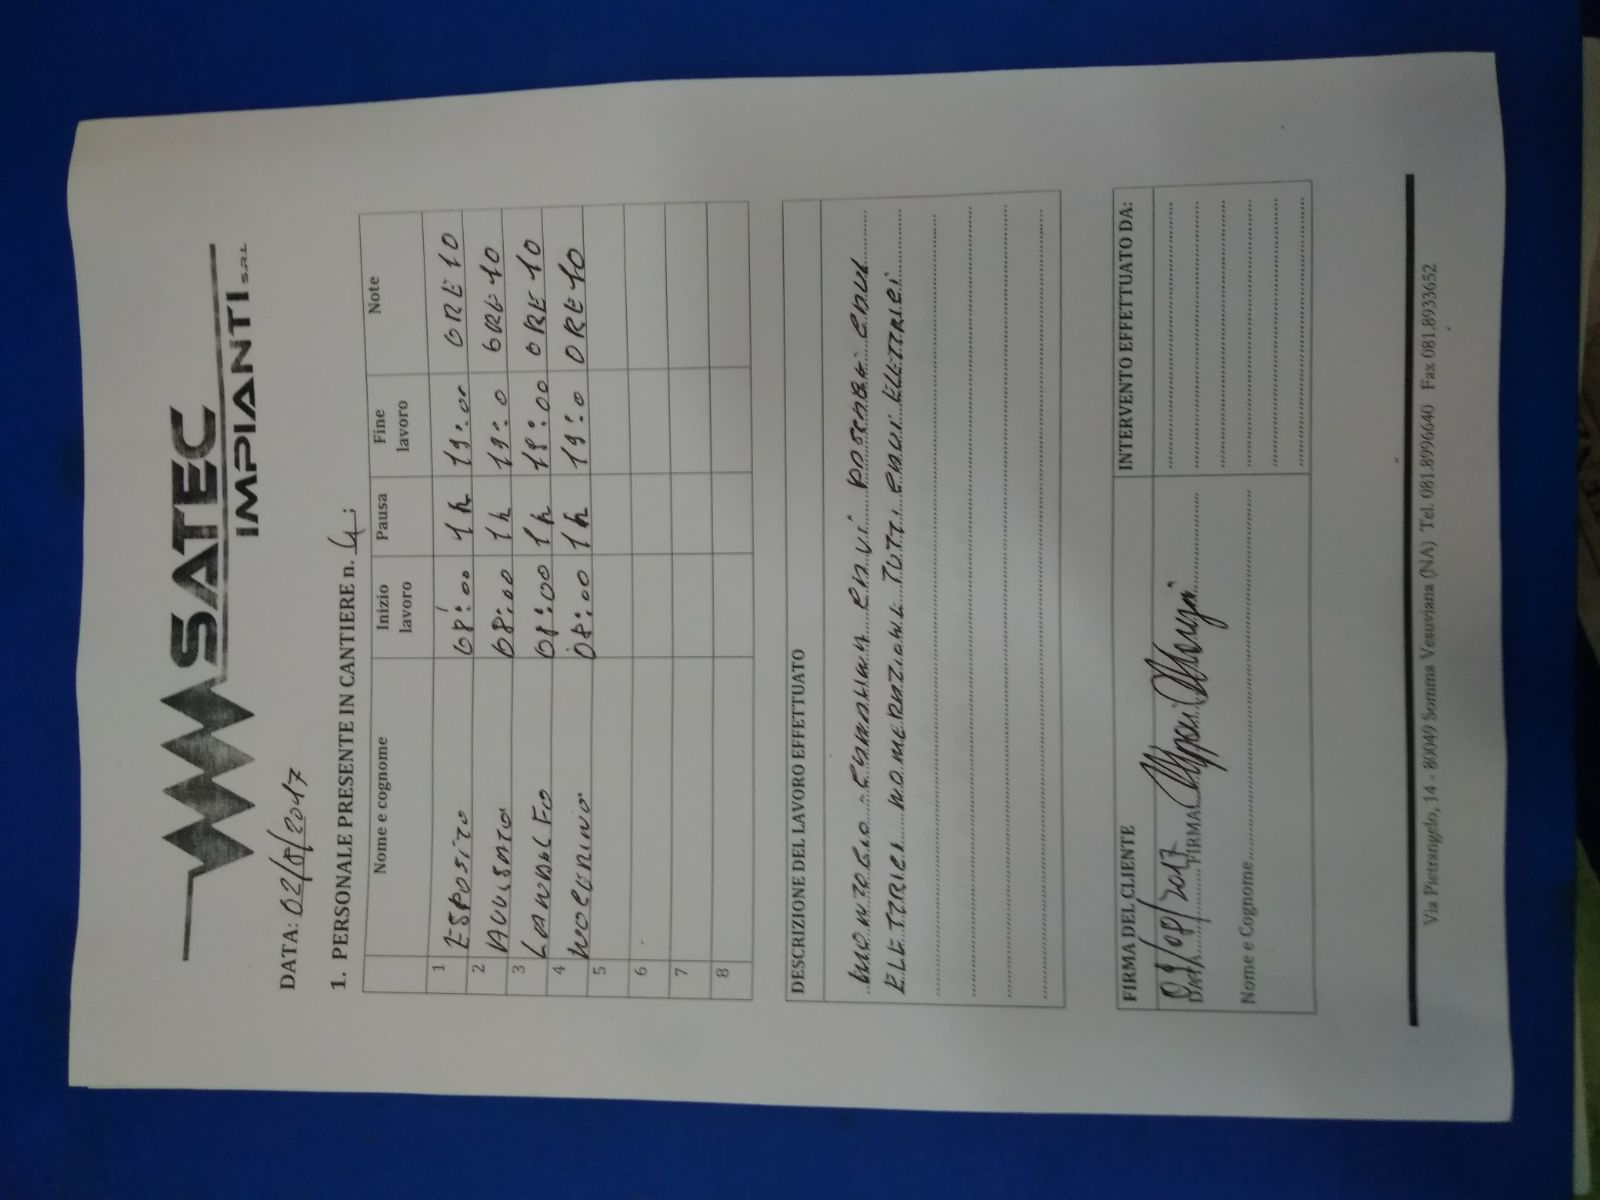 SATEC
IMPIANTI S.R.L.
DATA: 02/8/2017
1. PERSONALE PRESENTE IN CANTIERE n. 4:
Nome e cognome Inizio lavoro Pausa Fine lavoro Note
1 ESPOSITO 08:00 1h 19:00 ORE 10
2 08:00 1h 19:0 ORE 10
3 LANDOLFO 08:00 1h 19:00 ORE 10
4 NOCERINO 08:00 1h 19:0 ORE 10
5
6
7
8
DESCRIZIONE DEL LAVORO EFFETTUATO
MONTAGGIO CANALINA CAVI
ELETTRICI TUTTI CAVI ELETTRICI
FIRMA DEL CLIENTE INTERVENTO EFFETTUATO DA:
DATA FIRMA
Nome e Cognome
Via Pietrangelo, 14 - 80049 Somma Vesuviana (NA) Tel. 081.8996640 Fax 081.8933652